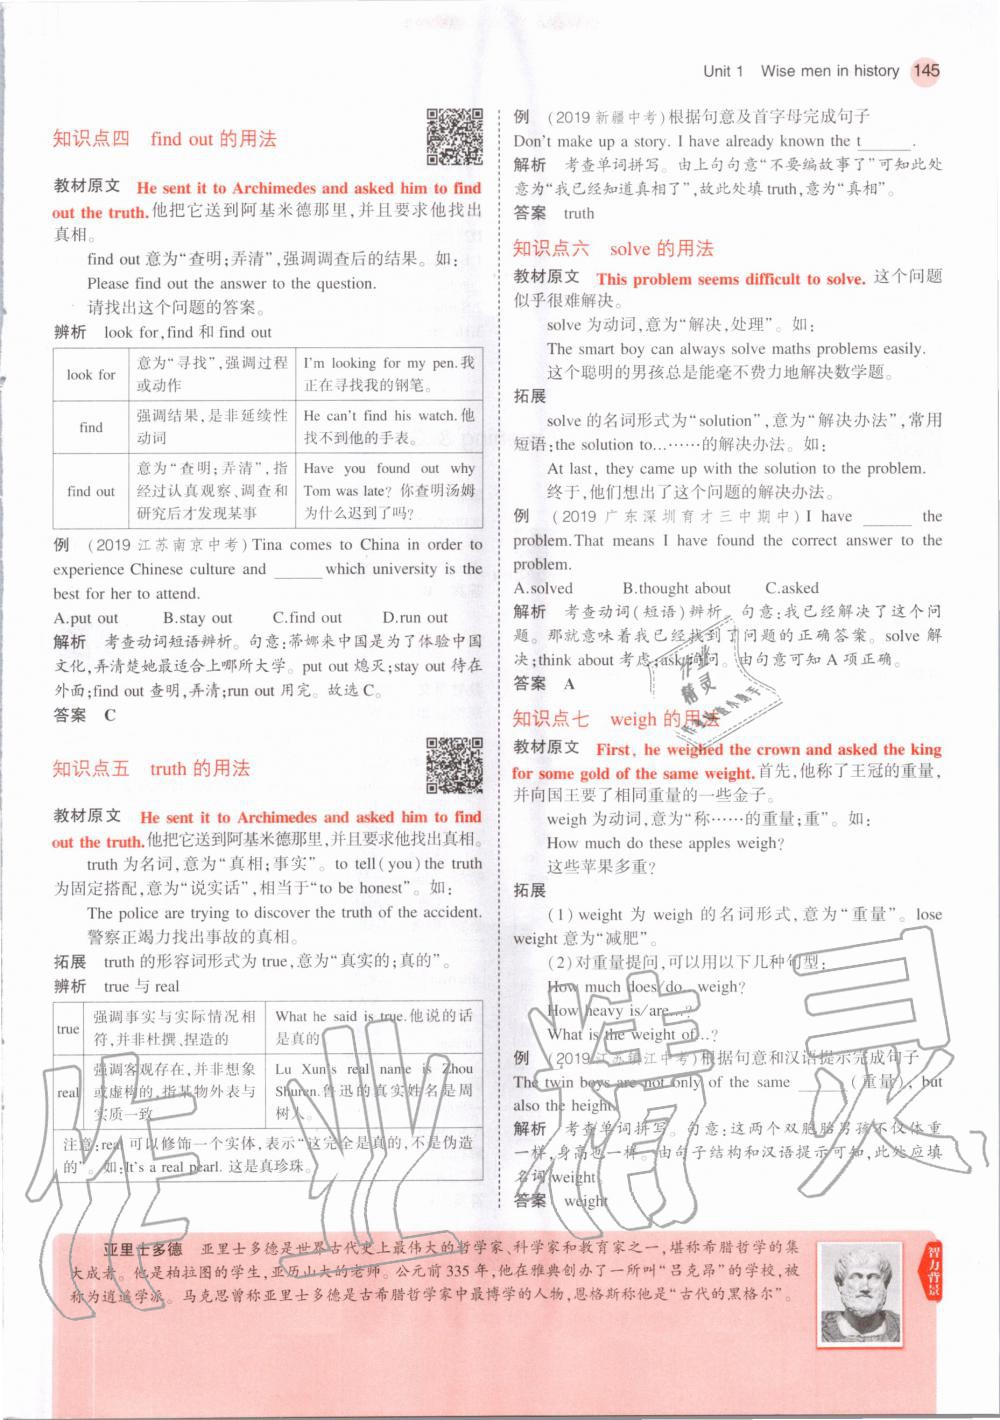 Unit 1 Wise men in history 145
知识点四 find out 的用法
教材原文 He sent it to Archimedes and asked him to find
out the truth.他把它送到阿基米德那里,并且要求他找出
真相。
find out 意为“查明;弄清”,强调调查后的结果。如:
Please find out the answer to the question.
请找出这个问题的答案。
辨析 look for,find 和 find out
look for 意为“寻找”,强调过程或动作 I'm looking for my pen.我正在寻找我的钢笔。
find 强调结果,是非延续性动词 He can't find his watch.他找不到他的手表。
find out 意为“查明;弄清”,指经过认真观察、调查和研究后才发现某事 Have you found out why Tom was late? 你查明汤姆为什么迟到了吗?
例 (2019江苏南京中考)Tina comes to China in order to
experience Chinese culture and ______ which university is the
best for her to attend.
A.put out B.stay out C.find out D.run out
解析 考查动词短语辨析。句意:蒂娜来中国是为了体验中国
文化,弄清楚她最适合上哪所大学。put out 熄灭;stay out 待在
外面;find out 查明,弄清;run out 用完。故选C。
答案 C
知识点五 truth 的用法
教材原文 He sent it to Archimedes and asked him to find
out the truth.他把它送到阿基米德那里,并且要求他找出真相。
truth 为名词,意为“真相;事实”。to tell(you)the truth
为固定搭配,意为“说实话”,相当于“to be honest”。如:
The police are trying to discover the truth of the accident.
警察正竭力找出事故的真相。
拓展 truth 的形容词形式为 true,意为“真实的;真的”。
辨析 true 与 real
true 强调事实与实际情况相符,并非杜撰、捏造的 What he said is true.他说的话是真的。
real 强调客观存在,并非想象或虚构的,指某物外表与实质一致 Lu Xun's real name is Zhou Shuren.鲁迅的真实姓名是周树人。
注意:real 可以修饰一个实体,表示“这完全是真的,不是伪造
的”。如:It's a real pearl. 这是真珍珠。
例 (2019新疆中考)根据句意及首字母完成句子
Don't make up a story. I have already known the t______.
解析 考查单词拼写。由上句句意“不要编故事了”可知此处
意为“我已经知道真相了”,故此处填 truth,意为“真相”。
答案 truth
知识点六 solve 的用法
教材原文 This problem seems difficult to solve. 这个问题
似乎很难解决。
solve 为动词,意为“解决,处理”。如:
The smart boy can always solve maths problems easily.
这个聪明的男孩总是能毫不费力地解决数学题。
拓展
solve 的名词形式为“solution”,意为“解决办法”,常用
短语:the solution to...……的解决办法。如:
At last, they came up with the solution to the problem.
终于,他们想出了这个问题的解决办法。
例 (2019广东深圳育才三中期中)I have ______ the
problem.That means I have found the correct answer to the
problem.
A.solved B.thought about C.asked
解析 考查动词(短语)辨析。句意:我已经解决了这个问
题。那就意味着我已经找到了问题的正确答案。solve 解
决;think about 考虑;ask 询问。由句意可知 A 项正确。
答案 A
知识点七 weigh 的用法
教材原文 First, he weighed the crown and asked the king
for some gold of the same weight.首先,他称了王冠的重量,
并向国王要了相同重量的一些金子。
weigh 为动词,意为“称……的重量;重”。如:
How much do these apples weigh?
这些苹果多重?
拓展
(1)weight 为 weigh 的名词形式,意为“重量”。lose
weight 意为“减肥”。
(2)对重量提问,可以用以下几种句型:
How much does/do...weigh?
How heavy is/are...?
What is the weight of...?
例 (2019江苏镇江中考)根据句意和汉语提示完成句子
The twin boys are not only of the same ______(重量), but
also the height.
解析 考查单词拼写。句意:这两个双胞胎男孩不仅体重
一样,身高也一样。由句子结构和汉语提示可知,此处应填
名词 weight。
答案 weight
亚里士多德 亚里士多德是世界古代史上最伟大的哲学家、科学家和教育家之一,堪称希腊哲学的集
大成者。他是柏拉图的学生,亚历山大的老师。公元前 335 年,他在雅典创办了一所叫“吕克昂”的学校,被
称为逍遥学派。马克思曾称亚里士多德是古希腊哲学家中最博学的人物,恩格斯称他是“古代的黑格尔”。
智力背景
作业精灵
作业精灵